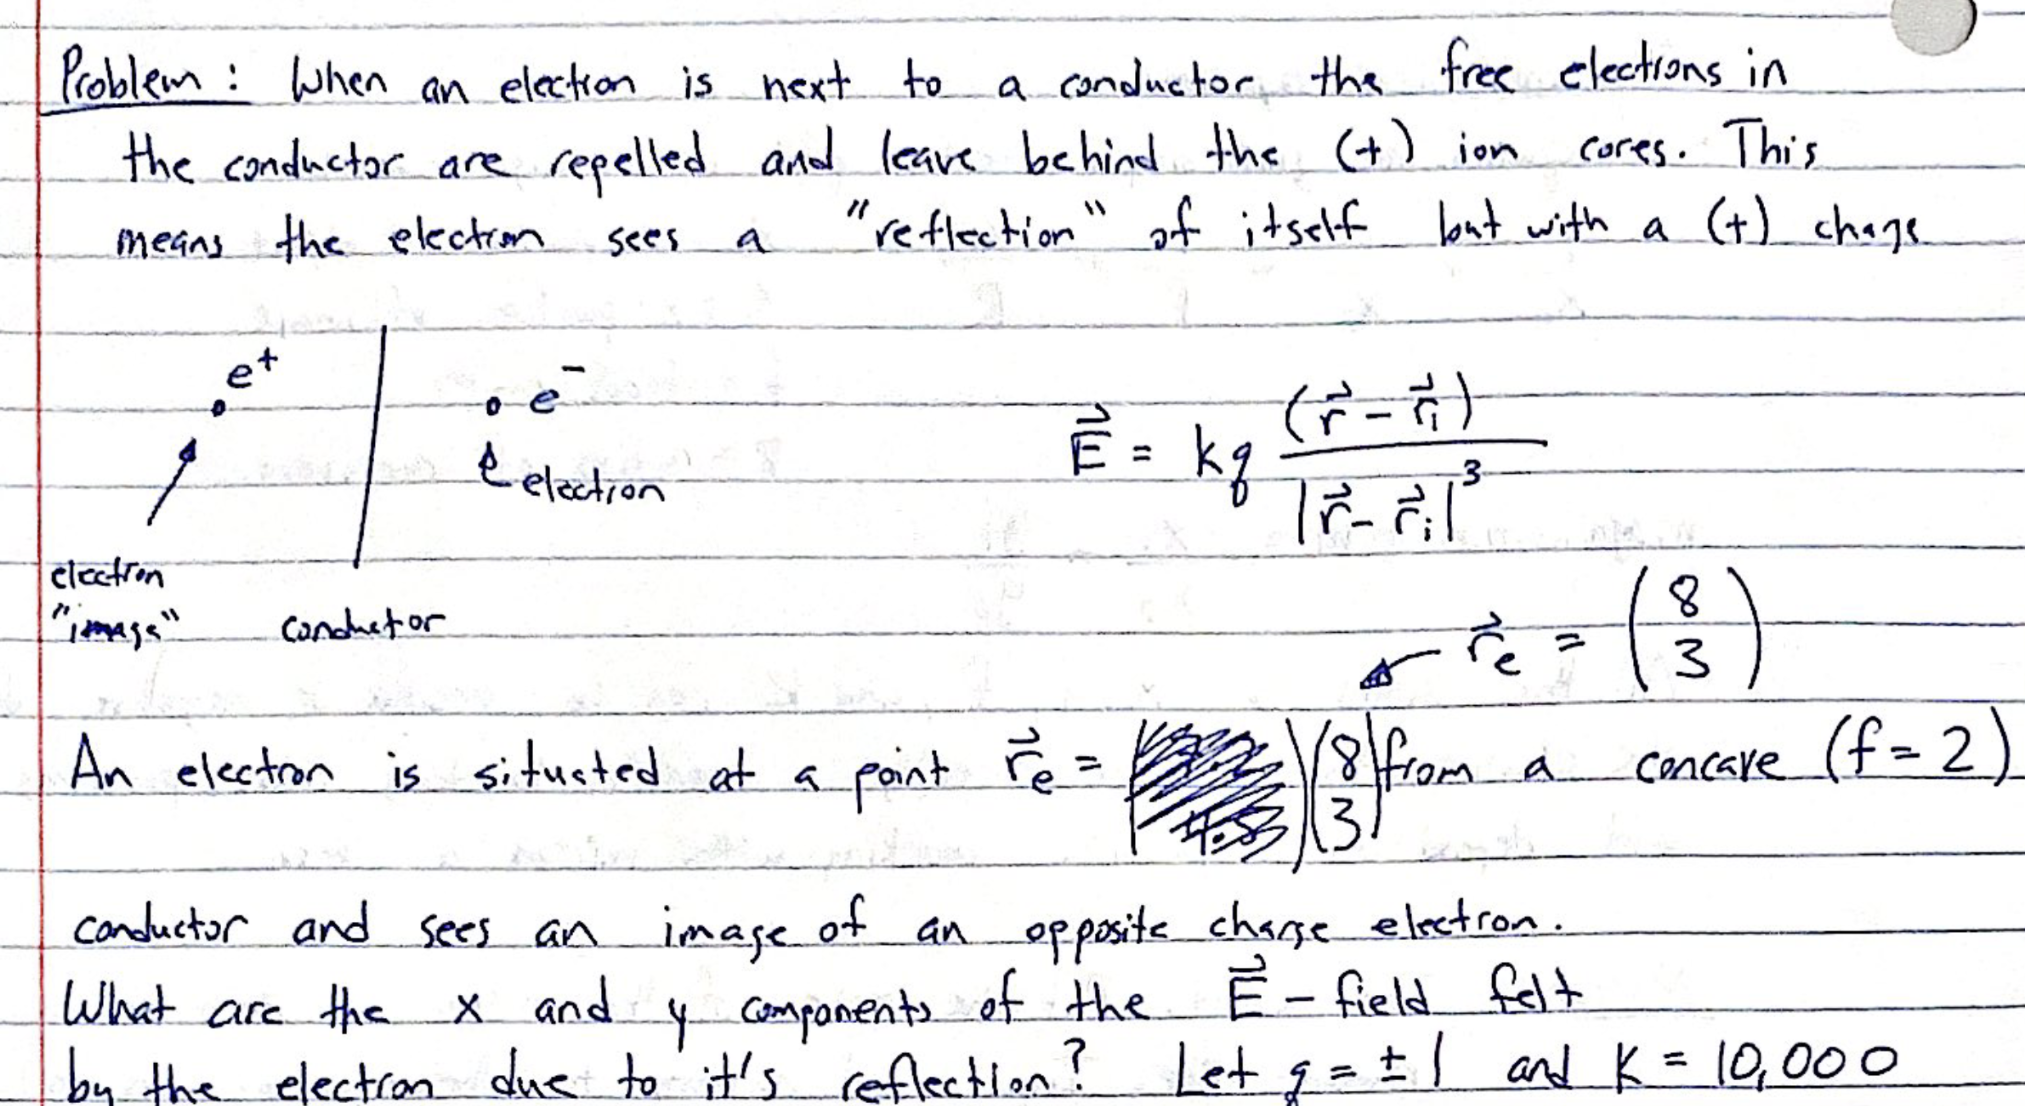 Problem: When an electron is next to a conductor, the free electrons in
the conductor are repelled and leave behind the (+) ion cores. This
means the electron sees a "reflection" of itself but with a (+) charge
e⁺
e⁻
electron
electron
"image"
conductor
E⃗ = kq (r⃗ - r⃗ᵢ) / |r⃗ - r⃗ᵢ|³
r⃗ₑ = (8 3)
An electron is situated at a point r⃗ₑ = (8 3) from a concave (f = 2)
conductor and sees an image of an opposite charge electron.
What are the x and y components of the E⃗ - field felt
by the electron due to it's reflection? Let q = ± 1 and K = 10,000